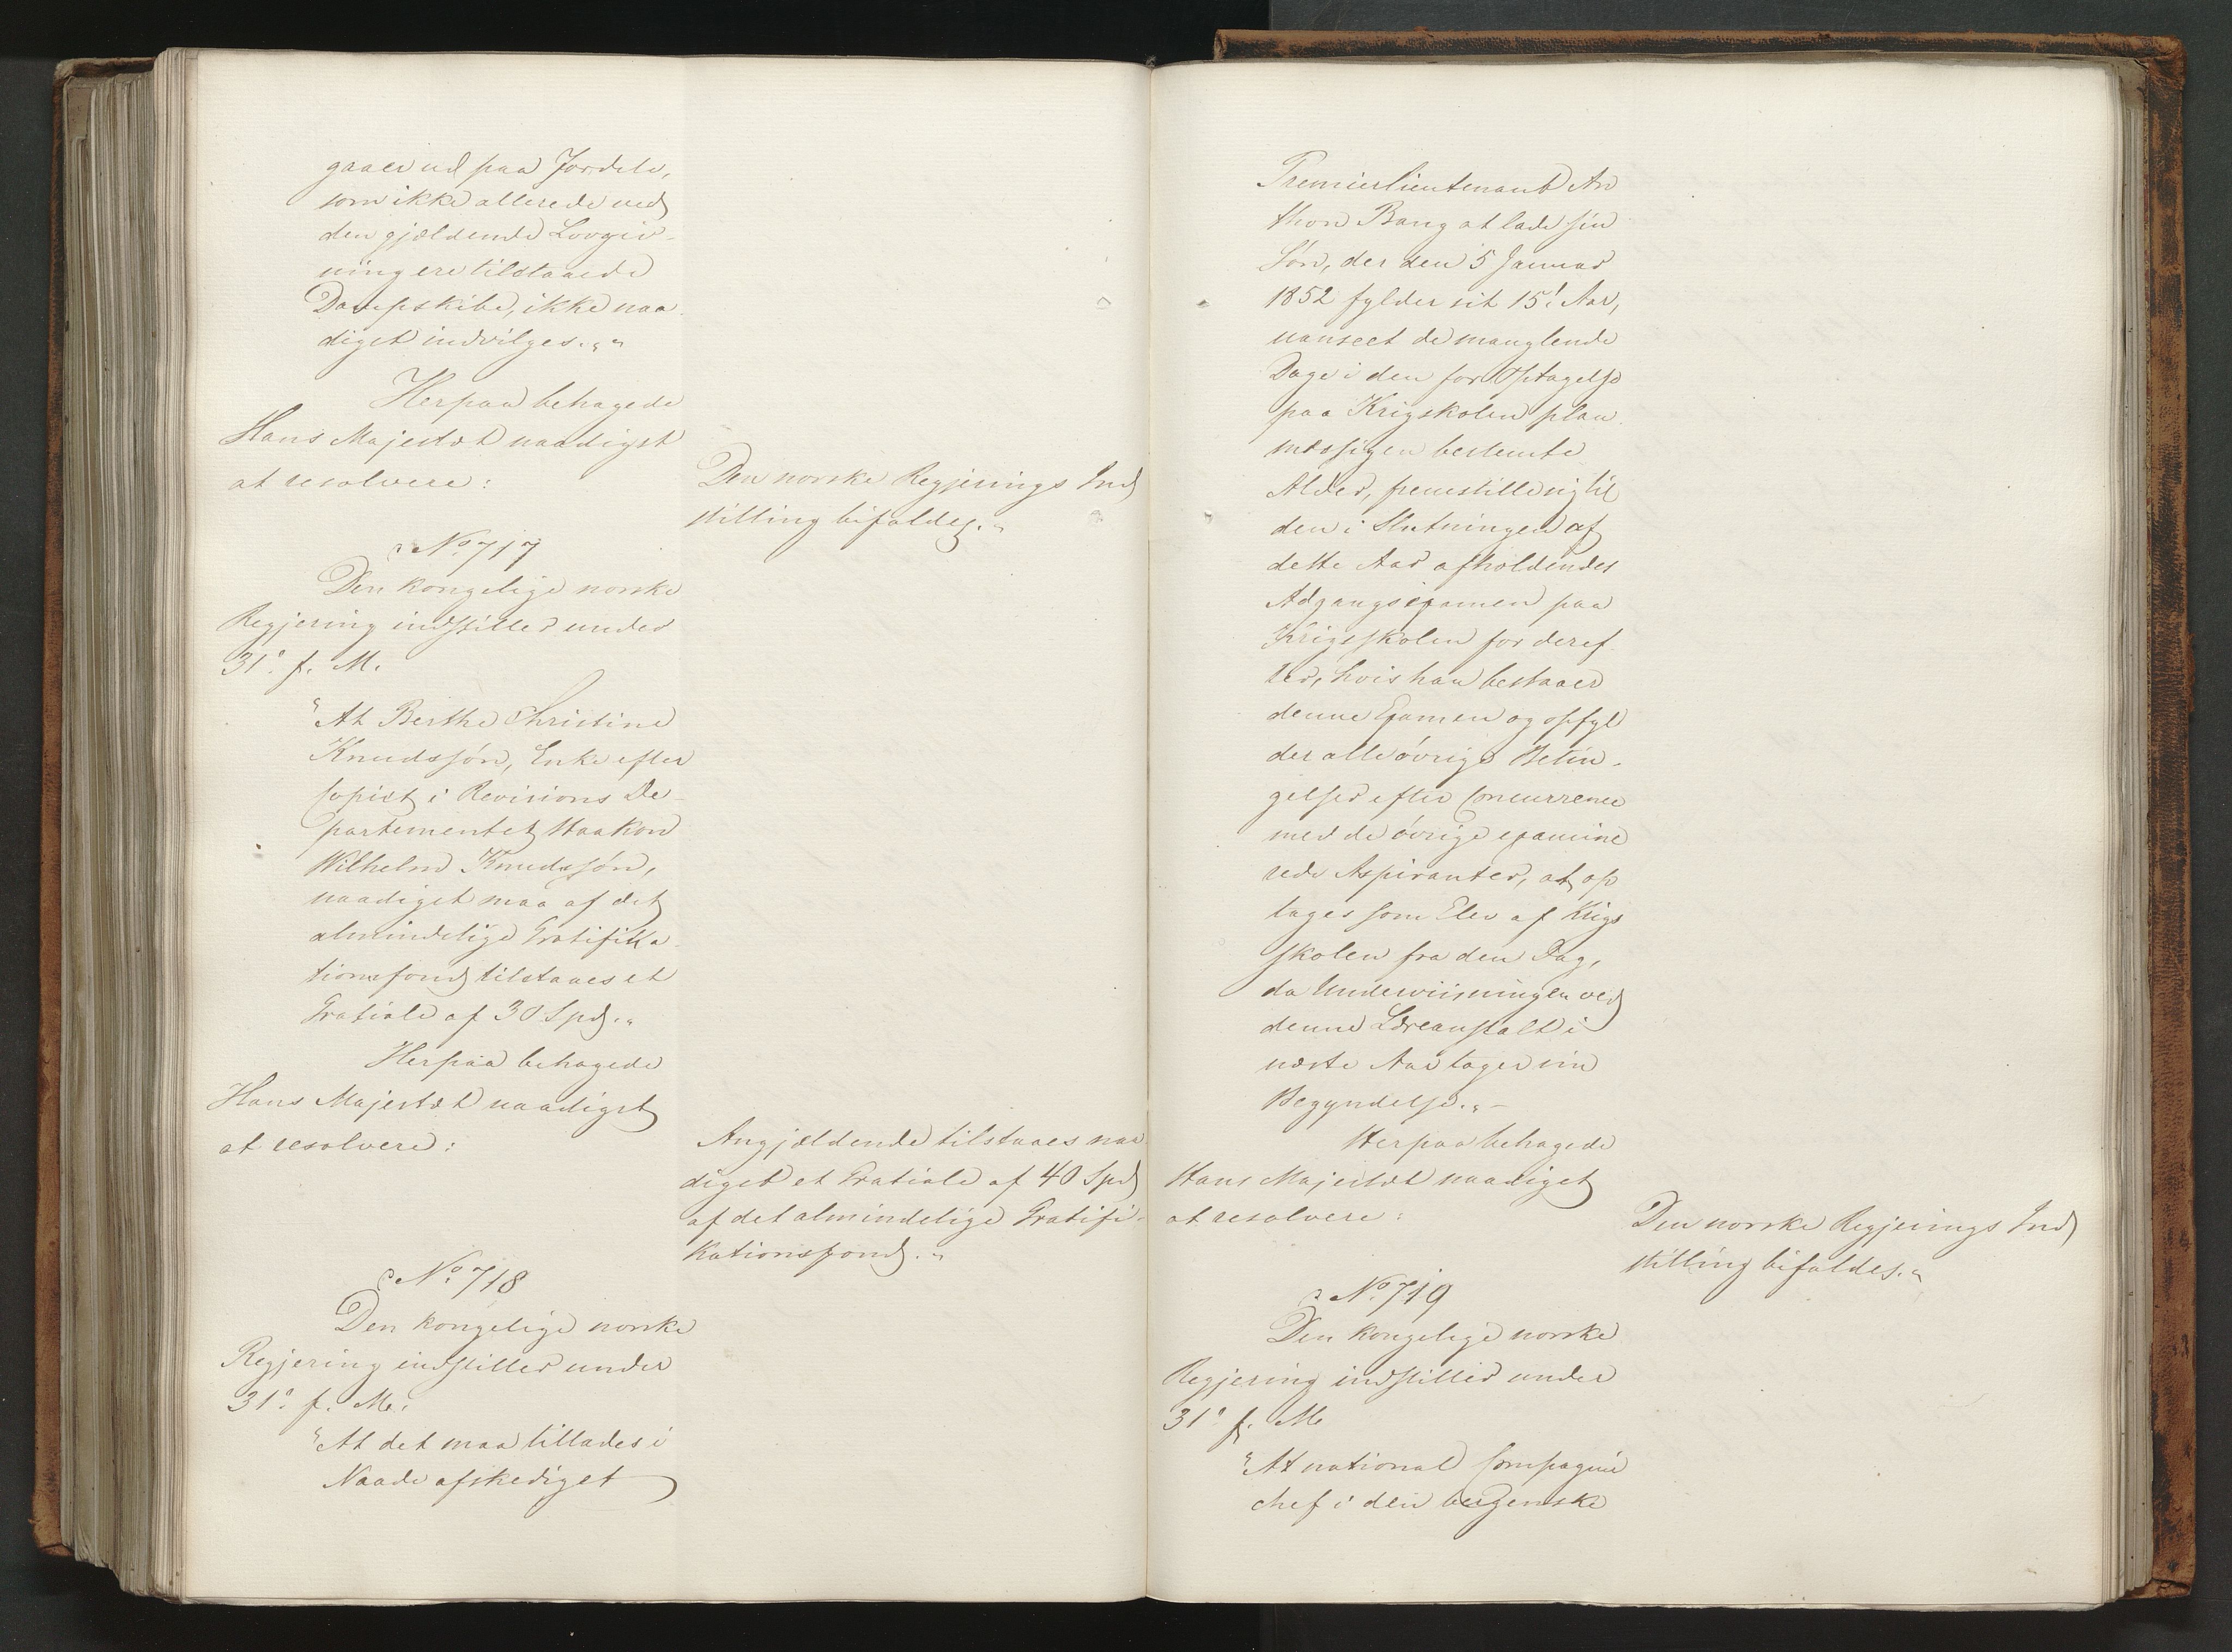 gaaer ud paa Fordele,
som ikke allerede ved
den gjældende Lovgiv-
ning ere tilstaaede
Dampskibe, ikke naa
digst indvilges.„"
Herpaa behagede
Hans Majestæt naadigst
at resolvere:
Den norske Regjerings Ind
stilling bifaldes.„
No. 717
Den kongelige norske
Regjering indstiller under
31. f. M.
"At Berthe Christine
Knudssøn, Enke efter
Copist i Revisions De-
partementet Haakon
Wilhelm Knudssøn,
naadigst maa af det
almindelige Gratifika
tionsfond tilstaaes et
Gratiale af 30 Spd.„
Herpaa behagede
Hans Majestæt naadigst
at resolvere:
Angjældende tilstaaes naa
digst et Gratiale af 40 Spd
af det almindelige Gratifi-
kationsfond.„
No. 718
Den kongelige norske
Regjering indstiller under
31. f. M.
"At det maa tillades i
Naade afskediget
Premierlieutenant An
thon Bang at lade sin
Søn, der den 5 Januar
1852 fylder sit 15! Aar,
uanseet de manglende
Dage i den for Optagelse
paa Krigskolen plan
mæssigen bestemte
Alder, fremstille sig til
den i Slutningen af
dette Aar afholdendes
Adgangsexamen paa
Krigsskolen for deref
ter, hvis han bestaaer
denne Examen og opfyl
der alle øvrige Betin-
gelser efter Concurrence
med de øvrige examine
rede Aspiranter, at op
tages som Elev af Krigs
skolen fra den Dag,
da Underviisningen ved
denne Læreanstalt i
næste Aar tager sin
Begyndelse.„-
Herpaa behagede
Hans Majestæt naadigst
at resolvere:
Den norske Regjerings Ind
stilling bifaldes.„
No. 719
Den kongelige norske
Regjering indstiller under
31. f. M.
"At national Compagnie
chef i den bergenske